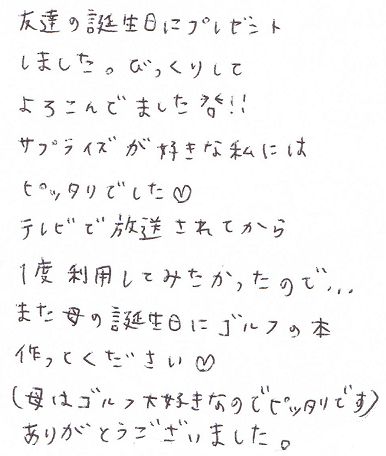 友達の誕生日にプレゼント
しました。びっくりして
よろこんでました!!
サプライズが好きな私には
ピッタリでした♡
テレビで放送されてから
1度利用してみたかったので...
また母の誕生日にゴルフの本
作ってください♡
(母はゴルフ大好きなのでピッタリです)
ありがとうございました。